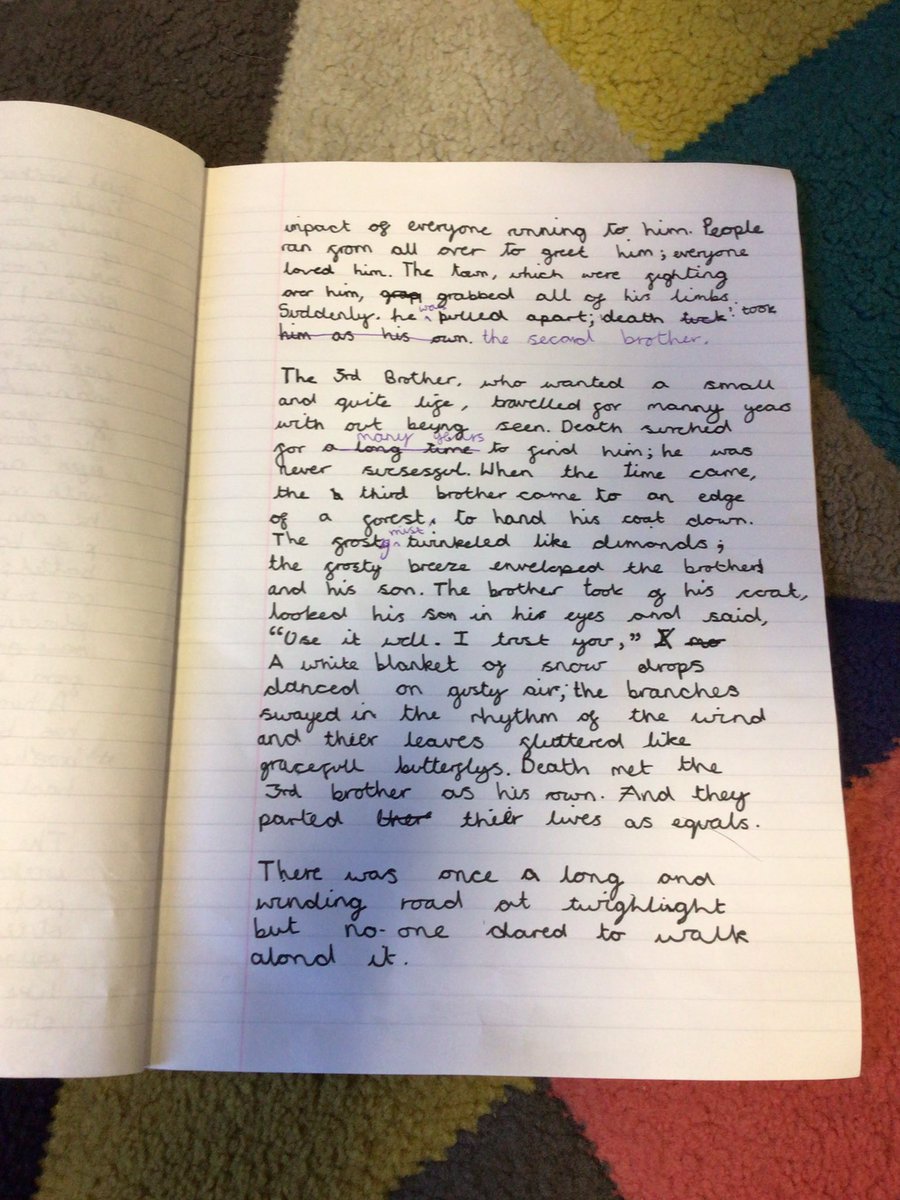 inpact of everyone running to him. People
ran from all over to greet him; everyone
loved him. The town, which were fighting
over him, grap grabbed all of his limbs.
Suddenly. he was pulled apart; death tuck took
him as his own. the second brother.
The 3rd Brother. who wanted a small
and quite life, travelled for manny yeas
with out beyng seen. Death surched
for a long time many years to find him; he was
never sucsessful. When the time came,
the b third brother came to an edge
of a forest, to hand his coat down.
The frosty mist twinkeled like dimonds;
the frosty breeze enveloped the brothers
and his son. The brother took of his coat,
looked his son in his eyes and said,
"Use it well. I trust you,"
A white blanket of snow drops
danced on gusty air; the branches
swayed in the rhythm of the wind
and thier leaves gluttered like
gracefull butterflys. Death met the
3rd brother as his own. And they
parted ther thier lives as equals.
There was once a long and
winding road at twighlight
but no-one dared to walk
alond it.